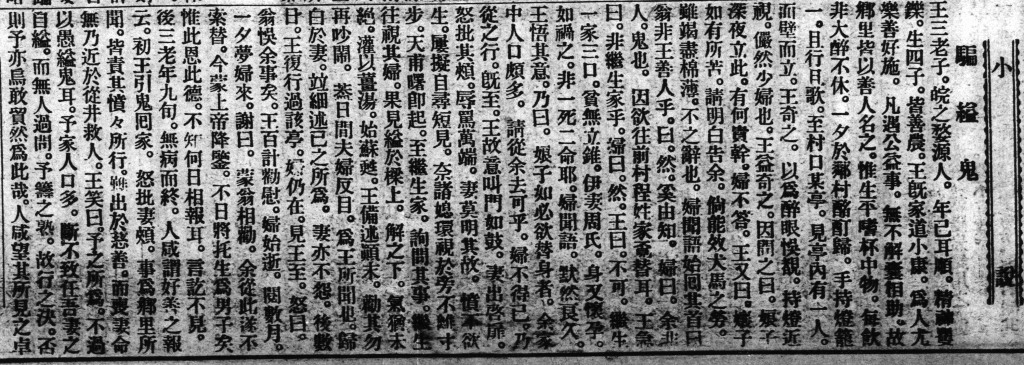 小說
騙縊鬼
王三老子。皖之婺源人。年已耳順。精神矍
鑠。生四子。皆善農。王既家道小康。為人尤
樂善好施。凡遇公益事。無不解囊相助。故
鄉里皆以善人名之。惟生平嗜杯中物。每飲
非大醉不休。一夕於鄰村酩酊歸。手持燈籠
。且行且歌。至村口某亭。見亭內有一人。
面壁而立。王奇之。以為醉眼悞視。持燈近
視。儼然少婦也。王益奇之。因問之曰。娘子
深夜立此。有何貴幹。婦不答。王又曰。娘子
如有所苦。請明白告余。倘能效犬馬之勞。
雖竭盡棉薄。不之辭也。婦聞語。始回其首曰
翁非王善人乎。曰。然。奚由知。婦曰。余非
人。鬼也。因欲往前村程姓家覓替耳。王
曰。非繼生家乎。婦曰。然。王曰。不可。繼生
一家三口。貧無立錐。伊妻周氏。身又懷孕。
如禍之。非一死二命耶。婦聞語。默然良久。
王悟其意。乃曰。娘子如必欲替身者。余家
中人口頗多。請從余去可乎。婦不得已。乃
從之行。既至。王故意叫門如鼓。妻出啓扉。
怒批其頰。辱罵萬端。妻莫明其故。憤不欲
生。屢擬自尋短見。奈諸媳環視於旁不離寸
步。天甫曙即起。至繼生家。詢問其事。繼生
往視其婦。果見縊於樑上。解之下。氣猶未
絕。灌以薑湯。始蘇甦。王備述顛末。勸其勿
再吵鬧。蓋日間夫婦反目。為王所聞也。歸
白於妻。竝細述已之所為。妻亦不怨。後數
日。王復行過該亭。婦仍在。見王至。怒曰。
翁悞余事矣。王百計勸慰。婦始逝。閱數月。
一夕夢婦來。謝曰。蒙翁相勸。余從此遂不
索替。今蒙上帝降鑒。不日將托生為男子矣
惟此恩此德。不知何日相報耳。言訖不見。
後三老年九旬。無病而終。人咸謂好善之報
云。初王引鬼囘家。怒批妻頰。事為鄉里所
聞。皆責其憒々所行。雖出於慈善。而喪妻命
無乃近於從井救人。王笑曰。予之所為。不過
以愚縊鬼耳。予家人口多。斷不致任吾妻之
自縊。而無人過問。予籌之熟。故行之決。否
則予亦烏敢貿然為此哉。人咸望其所見之卓